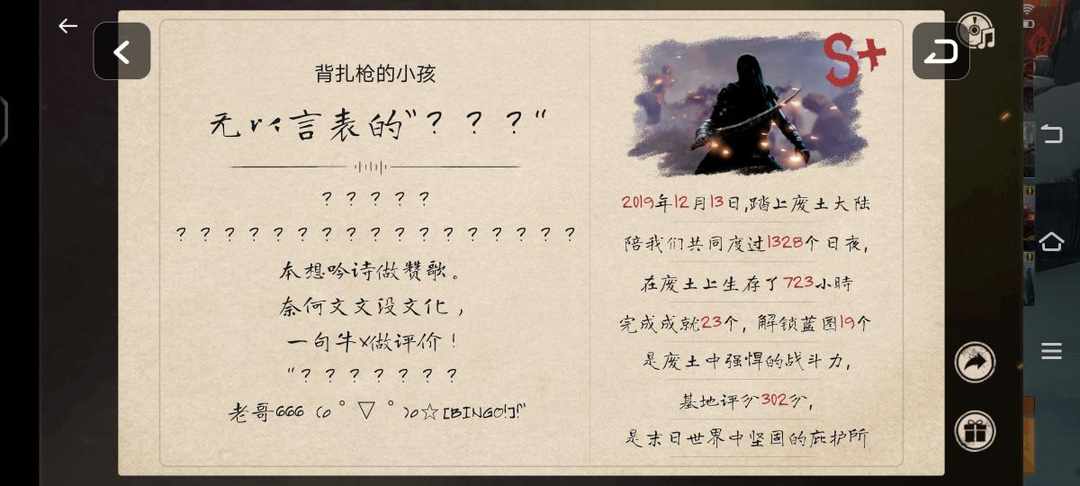 背扎枪的小孩
无以言表的"？？？"
？？？？？
？？？？？？？？？？？？？？？？？
本想吟诗做赞歌。
奈何文文没文化，
一句牛x做评价！
"？？？？？？？
老哥666 (o ゜▽ ゜)o☆[BINGO!]!"
S+
2019年12月13日,踏上废土大陆
陪我们共同度过1328个日夜,
在废土上生存了723小時
完成成就23个，解锁蓝图19个
是废土中强悍的战斗力,
基地评分302分,
是末日世界中坚固的庇护所